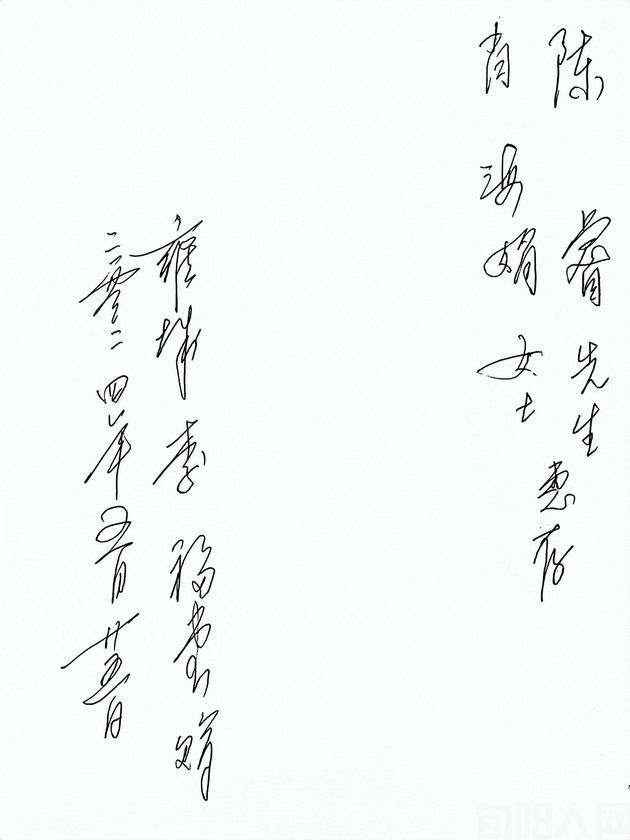 陈睿先生
肖海娟女士
惠存
雍城 李福
赠
二零二四年五月廿五日
旬阳人网